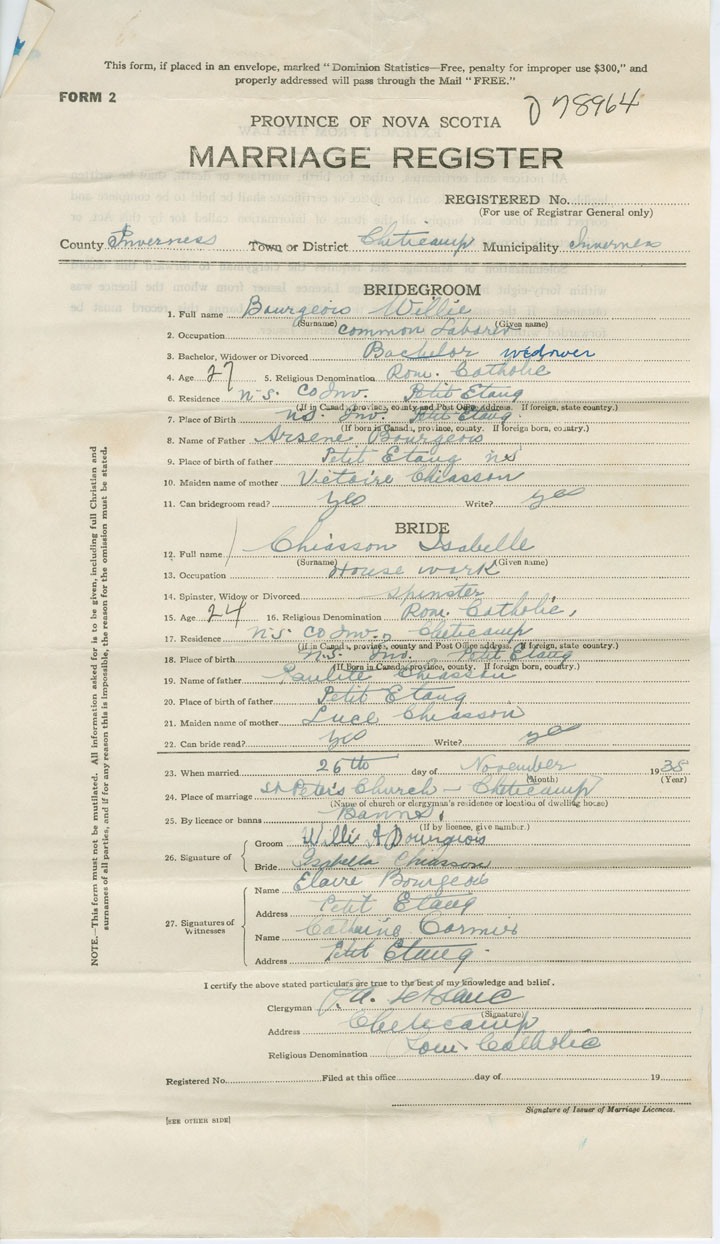 This form, if placed in an envelope, marked "Dominion Statistics—Free, penalty for improper use $300," and
properly addressed will pass through the Mail "FREE."
FORM 2
78964
PROVINCE OF NOVA SCOTIA
MARRIAGE REGISTER
REGISTERED No.
(For use of Registrar General only)
County Inverness Town or District Cheticamp Municipality Inverness
BRIDEGROOM
1. Full name Bourgeois Willie
(Surname) (Given name)
2. Occupation common Laborer
3. Bachelor, Widower or Divorced Bachelor widower
4. Age 27 5. Religious Denomination Rom. Catholic
6. Residence N.S. Co Inv. Petit Etang
(If in Canada, province, county and Post Office address. If foreign, state country.)
7. Place of Birth N.S. Inv. Petit Etang.
(If born in Canada, province, county. If foreign born, country.)
8. Name of Father Arsene Bourgeois
9. Place of birth of father Petit Etang N S
10. Maiden name of mother Victoire Chiasson
11. Can bridegroom read? Yes Write? yes
BRIDE
12. Full name Chiasson Isabelle
(Surname) (Given name)
13. Occupation House work
14. Spinster, Widow or Divorced spinster
15. Age 24 16. Religious Denomination Rom. Catholic,
17. Residence N.S. Co Inv., Cheticamp
(If in Canada, province, county and Post Office address. If foreign, state country.)
18. Place of birth N.S. Inv. Petit Etang
(If Born in Canada, province, county. If foreign born, country.)
19. Name of father Chiasson
20. Place of birth of father Petit Etang
21. Maiden name of mother Luce Chiasson
22. Can bride read? Yes Write? yes
23. When married 26th day of November 1938
(Month) (Year)
24. Place of marriage St Peter's Church - Cheticamp
(Name of church or clergyman's residence or location of dwelling house)
25. By licence or banns Banns,
(If by licence, give number.)
26. Signature of
Groom Willie A Bourgeois
Bride Isabella Chiasson
27. Signatures of Witnesses
Name Elaire Bourgeois
Address Petit Etang
Name Cormier
Address Petit Etang.
I certify the above stated particulars are true to the best of my knowledge and belief.
Clergyman LeBlanc
(Signature)
Address Cheticamp
Religious Denomination Rom. Catholic
Registered No. Filed at this office day of 19
Signature of Issuer of Marriage Licences.
[SEE OTHER SIDE]
NOTE.—This form must not be mutilated. All information asked for is to be given, including full Christian and
surnames of all parties, and if for any reason this is impossible, the reason for the omission must be stated.